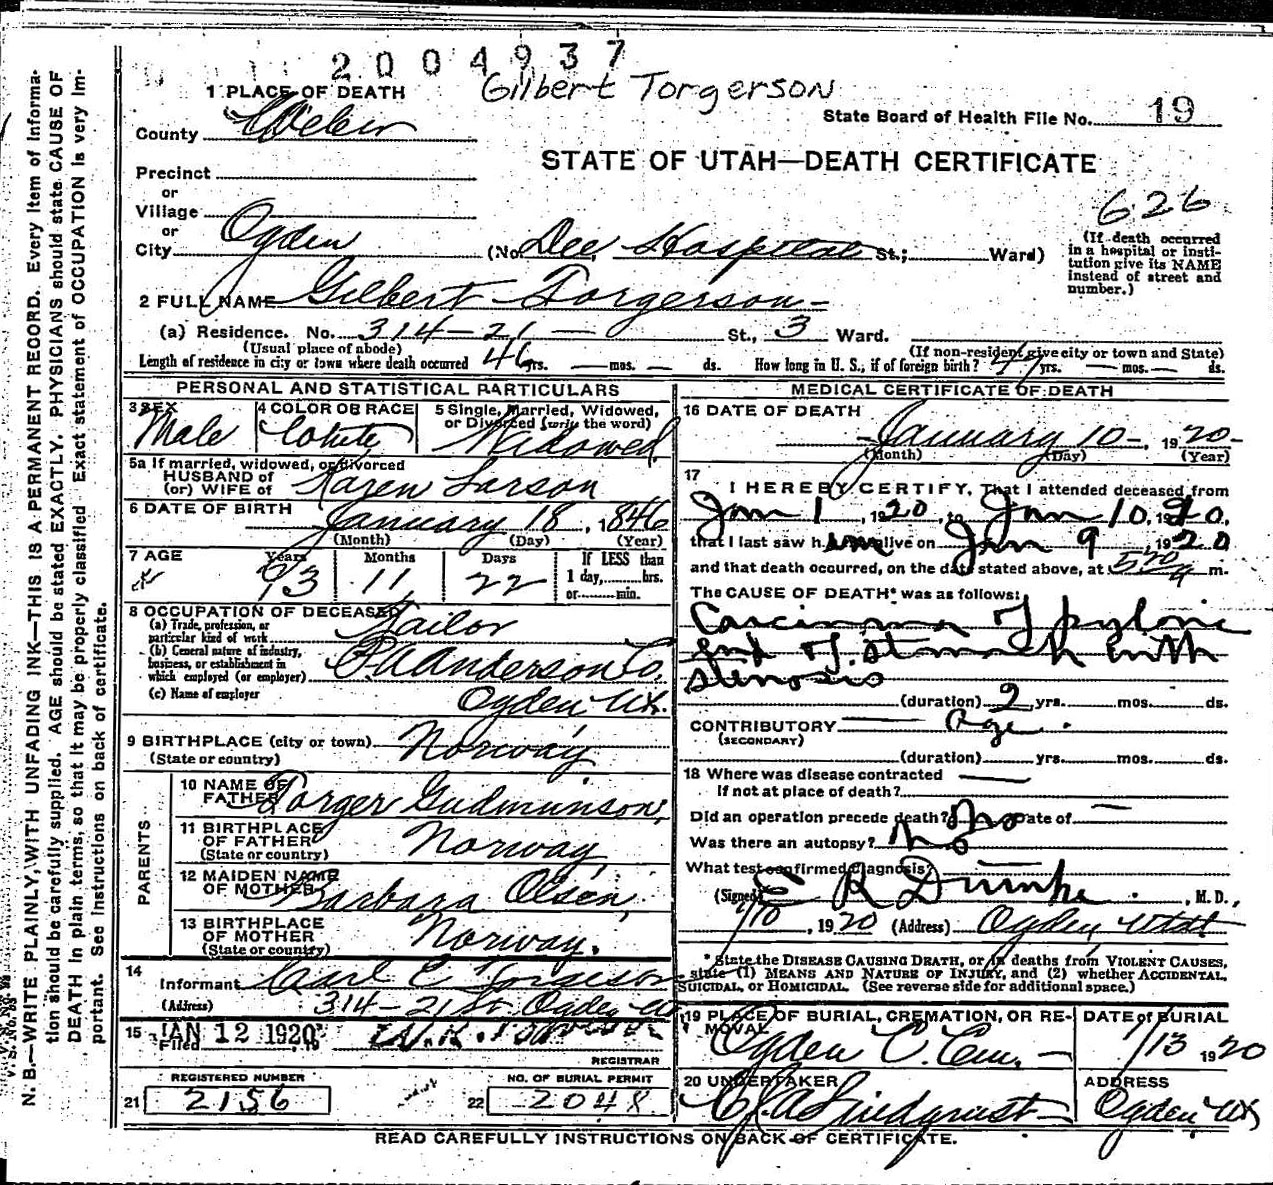 2004937
Gilbert Torgerson
1 PLACE OF DEATH
County Weber
State Board of Health File No. 19
STATE OF UTAH—DEATH CERTIFICATE
Precinct
or
Village
or
City Ogden (No. Dee Hospital St.; Ward)
626
(If death occurred
in a hospital or insti-
tution give its NAME
instead of street and
number.)
2 FULL NAME Gilbert Torgerson
(a) Residence. No. 314—21— St., 3 Ward.
(Usual place of abode) (If non-resident give city or town and State)
Length of residence in city or town where death occurred 46 yrs. — mos. — ds. How long in U. S., if of foreign birth? 47 yrs. — mos. — ds.
PERSONAL AND STATISTICAL PARTICULARS
3 SEX 4 COLOR OR RACE 5 Single, Married, Widowed,
or Divorced (write the word)
Male White Widowed
5a If married, widowed, or divorced
HUSBAND of
(or) WIFE of Karen Larson
6 DATE OF BIRTH January 18, 1846
(Month) (Day) (Year)
7 AGE Years Months Days If LESS than
1 day, hrs.
or min.
73 11 22
8 OCCUPATION OF DECEASED
(a) Trade, profession, or
particular kind of work Tailor
(b) General nature of industry,
business, or establishment in
which employed (or employer) P. A. Anderson Co.
(c) Name of employer Ogden Ut.
9 BIRTHPLACE (city or town) Norway
(State or country)
PARENTS
10 NAME OF
FATHER Torger Gudmunson,
11 BIRTHPLACE
OF FATHER Norway,
(State or country)
12 MAIDEN NAME
OF MOTHER Barbara Olsen,
13 BIRTHPLACE
OF MOTHER Norway.
(State or country)
14
Informant Carl E Torgeson
(Address) 314—21 St. Ogden Ut
15 JAN 12 1920
Filed , 19
REGISTRAR
REGISTERED NUMBER NO. OF BURIAL PERMIT
21 2156 22 2048
MEDICAL CERTIFICATE OF DEATH
16 DATE OF DEATH
January 10—, 1920—
(Month) (Day) (Year)
17
I HEREBY CERTIFY, That I attended deceased from
Jan 1, 1920, to Jan 10, 1920,
that I last saw him alive on Jan 9 1920
and that death occurred, on the date stated above, at 5 20 a m.
The CAUSE OF DEATH* was as follows:
Carcinoma of pyloric
end of stomach with
stenosis
(duration) 2 yrs. mos. ds.
CONTRIBUTORY — Age.
(SECONDARY)
(duration) yrs. mos. ds.
18 Where was disease contracted
If not at place of death?
Did an operation precede death? No Date of —
Was there an autopsy? No
What test confirmed diagnosis? —
(Signed) E R Dumke, M. D.,
1/10, 1920 (Address) Ogden Utah
* State the DISEASE CAUSING DEATH, or in deaths from VIOLENT CAUSES,
state (1) MEANS AND NATURE OF INJURY, and (2) whether ACCIDENTAL,
SUICIDAL, or HOMICIDAL. (See reverse side for additional space.)
19 PLACE OF BURIAL, CREMATION, OR RE-
MOVAL
Ogden C. Cem.—
DATE of BURIAL
1/13 1920
20 UNDERTAKER
C. J. A. Lindquist—
ADDRESS
Ogden Ut
READ CAREFULLY INSTRUCTIONS ON BACK OF CERTIFICATE.
N. B.—WRITE PLAINLY, WITH UNFADING INK—THIS IS A PERMANENT RECORD. Every item of informa-
tion should be carefully supplied. AGE should be stated EXACTLY. PHYSICIANS should state CAUSE OF
DEATH in plain terms, so that it may be properly classified. Exact statement of OCCUPATION is very im-
portant. See instructions on back of certificate.